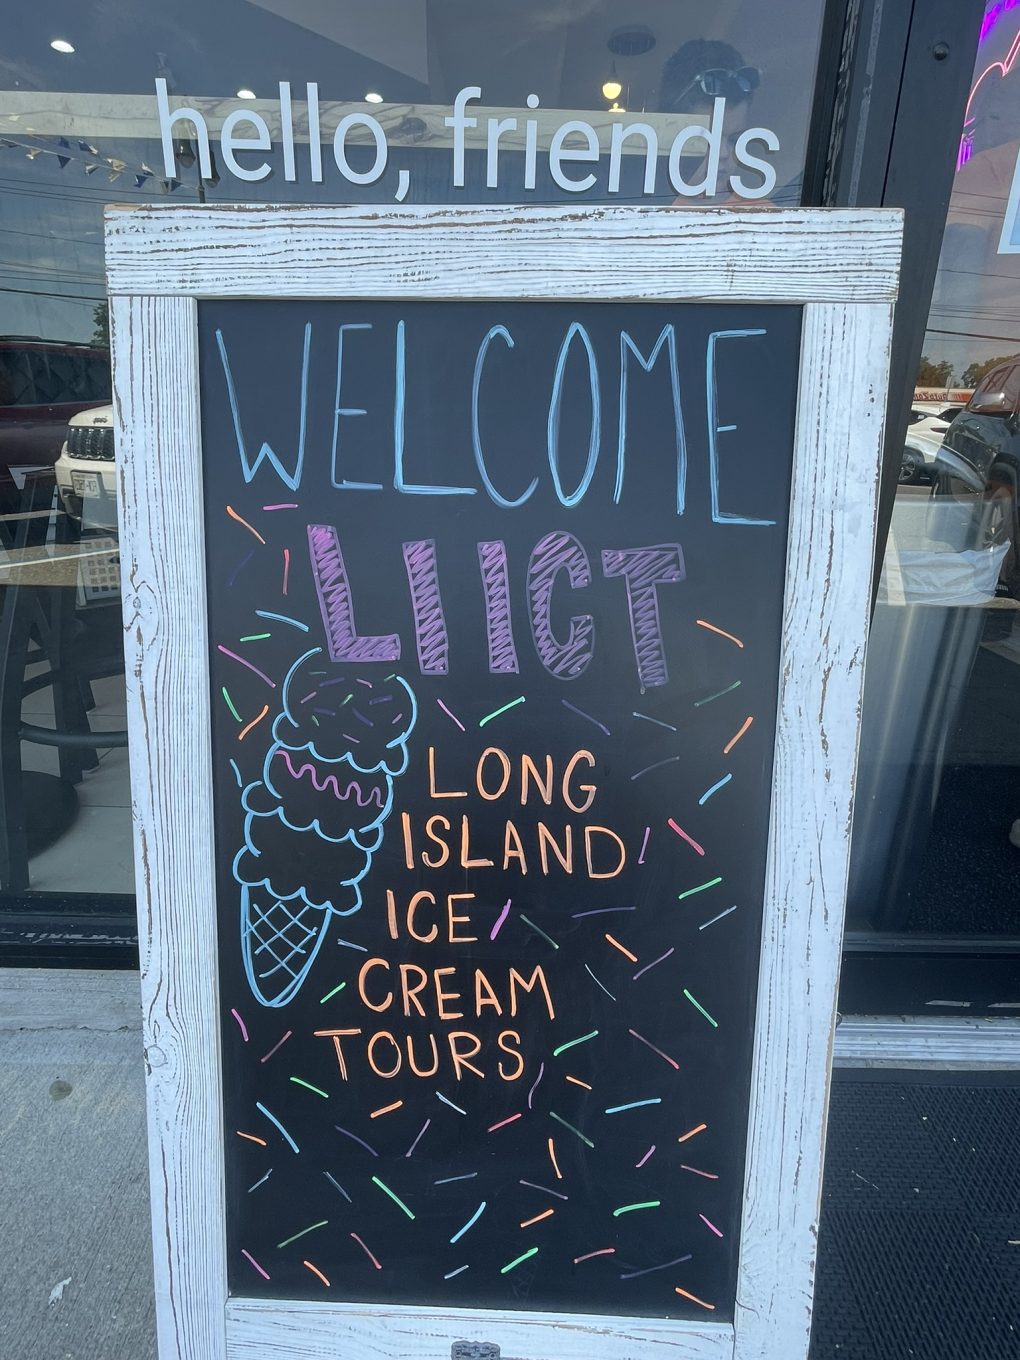 hello, friends
WELCOME
LIICT
LONG
ISLAND
ICE
CREAM
TOURS